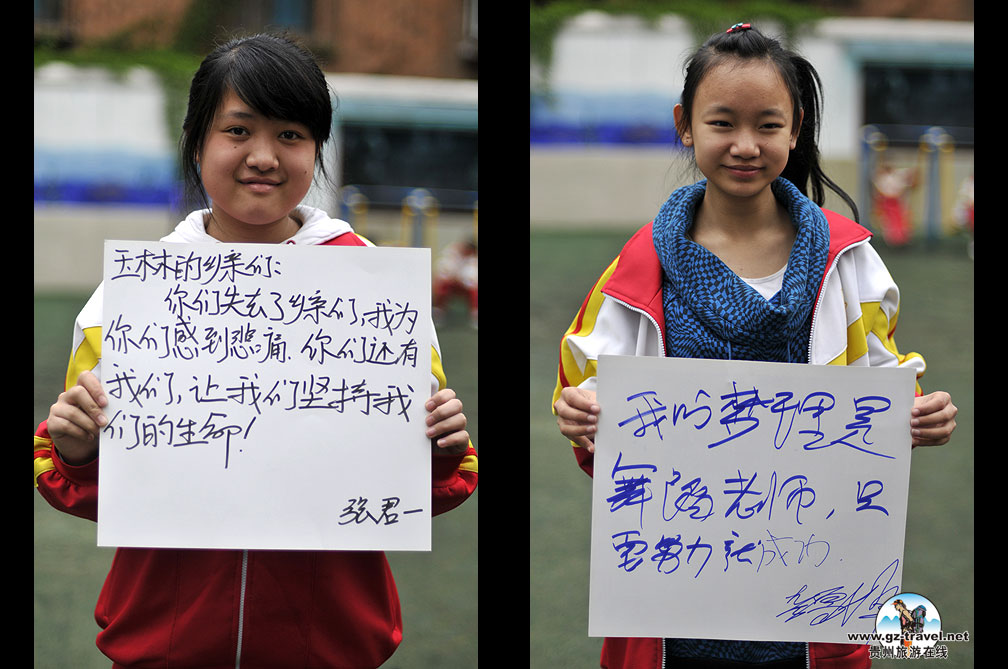 玉木木的乡亲们:
你们失去了乡亲们,我为
你们感到悲痛.你们还有
我们,让我们坚持我
们的生命!
张君一
我的梦理是
舞蹈老师,只
要努力就成功.
www.gz-travel.net
贵州旅游在线